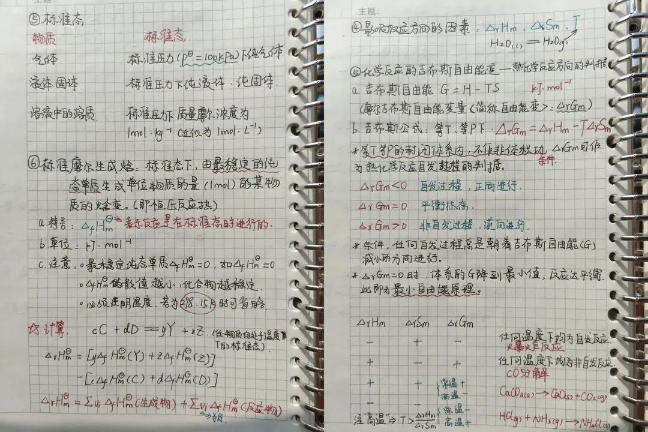 主题:
⑤标准态
物质 标准态
气体 标准压力(p^⊖=100kPa)下纯气体
液体固体 标准压力下纯液体、纯固体
溶液中的溶质 标准压力下质量摩尔浓度为
1mol·kg⁻¹(近似为1mol·L⁻¹)
⑥标准摩尔生成焓:标准态下,由最稳定的纯
态单质生成单位物质的量(1mol)的某物
质的焓变。(即恒压反应热)
a.符号: ΔfHm^⊖ 表示反应是在标准态时进行的.
b.单位: kJ·mol⁻¹
c.注意: 最稳定纯态单质ΔfHm^⊖=0,如ΔfHm^⊖=0
ΔfHm^⊖代数值越小,化合物越稳定
必须注明温度,若为298.15K时可省略
☆计算: cC+dD==yY+zZ
T的标准态)
ΔrHm^⊖=[yΔfHm^⊖(Y)+zΔfHm^⊖(Z)]
-[cΔfHm^⊖(C)+dΔfHm^⊖(D)]
ΔrHm^⊖=Σνi ΔfHm^⊖(生成物)+Σνi ΔfHm^⊖(反应物)
主题:
④影响反应方向的因素:ΔrHm、ΔrSm、T
H₂O(l)==H₂O(g)
化学反应的吉布斯自由能变—热化学反应方向的判据
a.吉布斯自由能 G=H-TS kJ·mol⁻¹
(摩尔吉布斯自由能变量(简称自由能变):ΔrGm)
b.吉布斯公式:等T、等P下 ΔrGm=ΔrHm-TΔrSm
*等T等P的封闭体系内,不作非体积功,ΔrGm可作
条件
为热化学反应自发过程的判据。
ΔrGm<0 自发过程,正向进行.
ΔrGm=0 平衡状态.
ΔrGm>0 非自发过程,逆向进行.
*条件,任何自发过程总是朝着吉布斯自由能(G)
减小的方向进行。
*ΔrGm=0时,体系的G降到最小值,反应达平衡
此即为最小自由能原理。
ΔrHm ΔrSm ΔrGm
- + - 任何温度下均为自发反应
+ - + 任何温度下均为非自发反应
CO分解
+ + 常温+ 高温- CaCO₃(s)→CaO(s)+CO₂(g)
- - 高温+ HCl(g)+NH₃(g)→NH₄Cl(s)
注"高温"⇒T>ΔrHm/ΔrSm